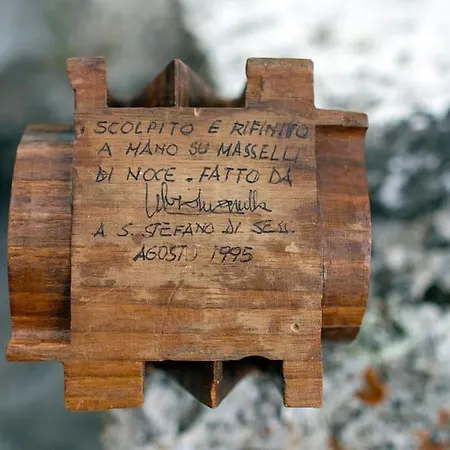 SCOLPITO E RIFINITO
A MANO SU MASSELLI
DI NOCE. FATTO DA
A S. STEFANO DI SES.
AGOSTO 1995